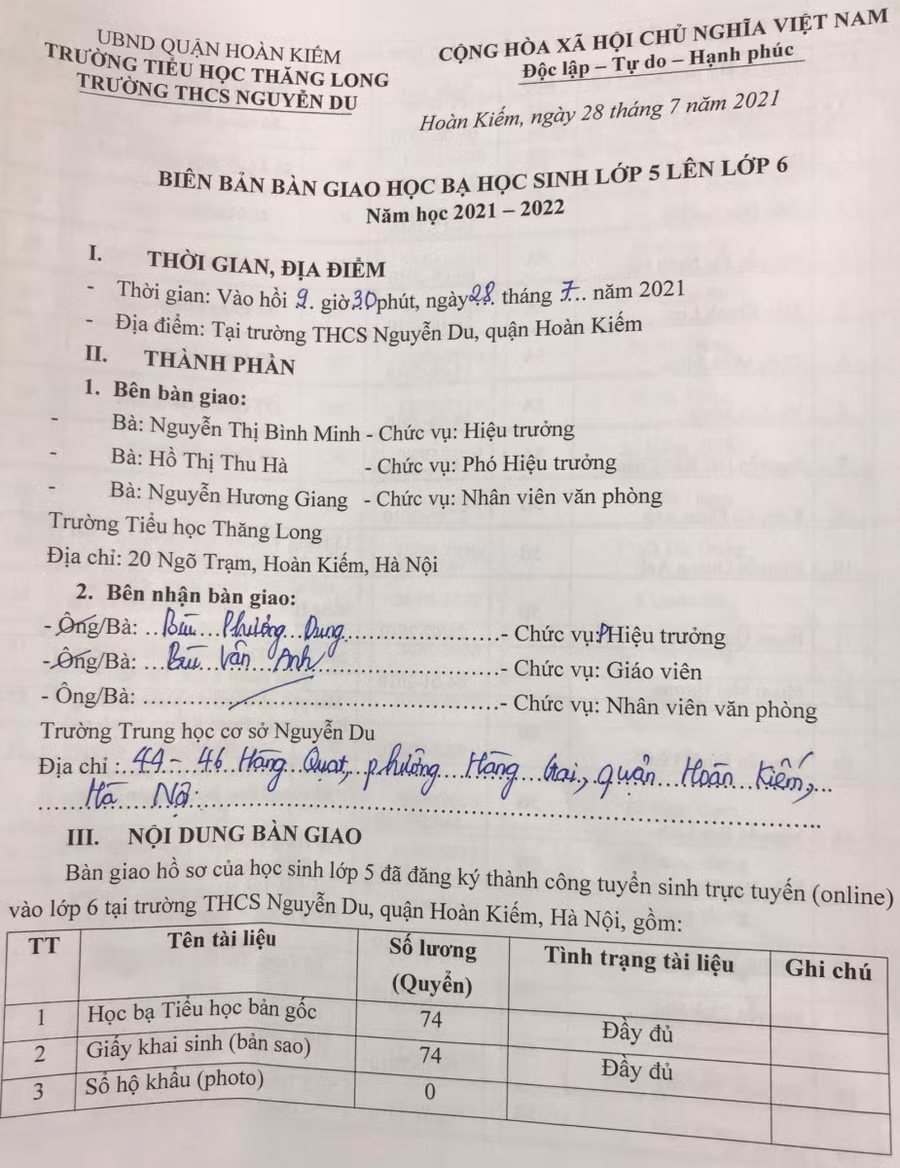 UBND QUẬN HOÀN KIẾM
TRƯỜNG TIỂU HỌC THĂNG LONG
TRƯỜNG THCS NGUYỄN DU
CỘNG HÒA XÃ HỘI CHỦ NGHĨA VIỆT NAM
Độc lập – Tự do – Hạnh phúc
Hoàn Kiếm, ngày 28 tháng 7 năm 2021
BIÊN BẢN BÀN GIAO HỌC BẠ HỌC SINH LỚP 5 LÊN LỚP 6
Năm học 2021 – 2022
I. THỜI GIAN, ĐỊA ĐIỂM
- Thời gian: Vào hồi 9. giờ 30 phút, ngày 28 tháng 7... năm 2021
- Địa điểm: Tại trường THCS Nguyễn Du, quận Hoàn Kiếm
II. THÀNH PHẦN
1. Bên bàn giao:
- Bà: Nguyễn Thị Bình Minh - Chức vụ: Hiệu trưởng
- Bà: Hồ Thị Thu Hà - Chức vụ: Phó Hiệu trưởng
- Bà: Nguyễn Hương Giang - Chức vụ: Nhân viên văn phòng
Trường Tiểu học Thăng Long
Địa chỉ: 20 Ngõ Trạm, Hoàn Kiếm, Hà Nội
2. Bên nhận bàn giao:
- Ông/Bà: Bùi Phương Dung - Chức vụ: PHiệu trưởng
- Ông/Bà: Bùi Vân Anh - Chức vụ: Giáo viên
- Ông/Bà: - Chức vụ: Nhân viên văn phòng
Trường Trung học cơ sở Nguyễn Du
Địa chỉ : 44 - 46 Hàng Quạt, phường Hàng Gai, quận Hoàn Kiếm,
Hà Nội
III. NỘI DUNG BÀN GIAO
Bàn giao hồ sơ của học sinh lớp 5 đã đăng ký thành công tuyển sinh trực tuyến (online)
vào lớp 6 tại trường THCS Nguyễn Du, quận Hoàn Kiếm, Hà Nội, gồm:
TT Tên tài liệu Số lương (Quyển) Tình trạng tài liệu Ghi chú
1 Học bạ Tiểu học bản gốc 74 Đầy đủ
2 Giấy khai sinh (bản sao) 74 Đầy đủ
3 Sổ hộ khẩu (photo) 0